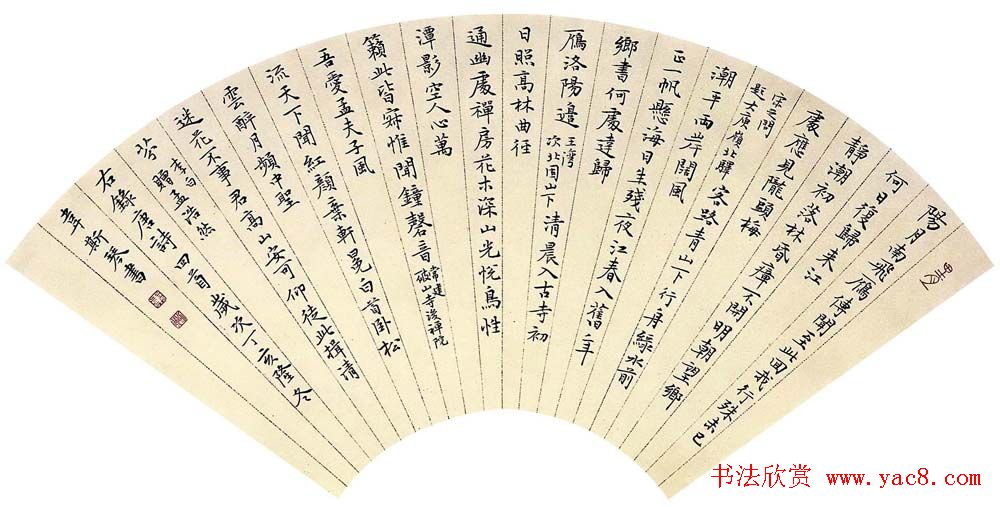 陽月南飛鴈傳聞至此回我行殊未已
何日復歸來江
靜潮初落林昏瘴不開明朝望鄉
處應見隴頭梅
宋之問
題大庾嶺北驛
客路青山下行舟綠水前
潮平兩岸闊風
正一帆懸海日生殘夜江春入舊年
鄉書何處達歸
鴈洛陽邊
王灣
次北固山下
清晨入古寺初
日照高林曲徑
通幽處禪房花木深山光悅鳥性
潭影空人心萬
籟此皆寂惟聞鐘磬音
常建
破山寺後禪院
吾愛孟夫子風
流天下聞紅顏棄軒冕白首臥松
雲醉月頻中聖
迷花不事君高山安可仰徒此揖清
芬
李白
贈孟浩然
右錄唐詩四首歲次丁亥隆冬
韋斯琴書
书法欣赏 www.yac8.com